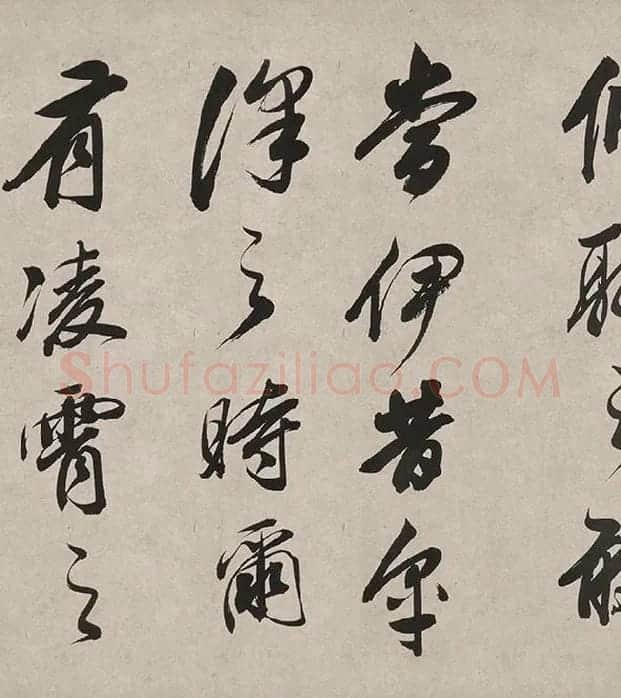 當伊昔皋
澤之時爾
有凌霄之
Shufaziliao.COM